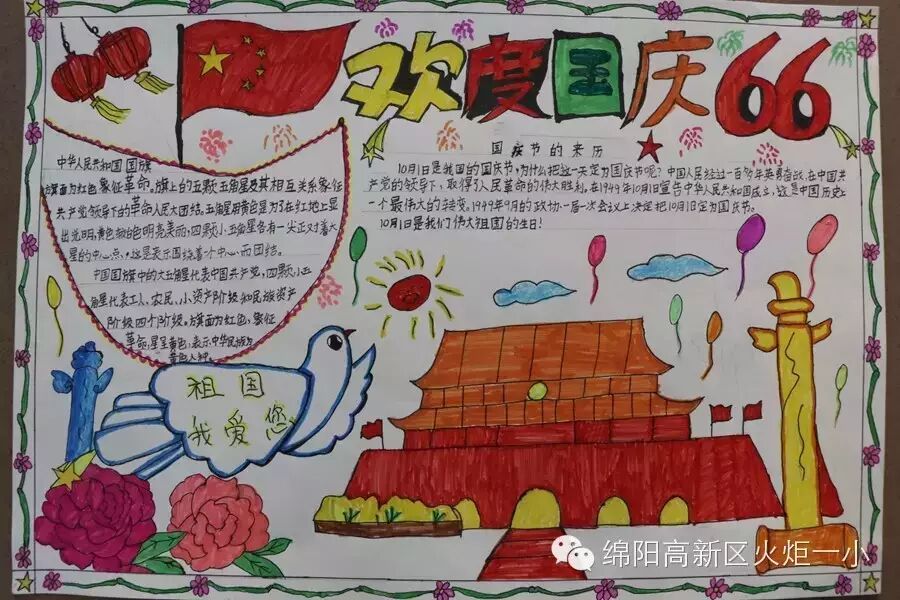 欢度国庆66
中华人民共和国国旗
旗面为红色象征革命,旗上的五颗五角星及其相互关系象征
共产党领导下的革命人民大团结。五角星用黄色是为了在红地上显
出光明,黄色较白色明亮美丽,四颗小五角星各有一尖正对着大
星的中心点,这是表示围绕着一个中心而团结。
中国国旗中的大五角星代表中国共产党,四颗小五
角星代表工人、农民、小资产阶级和民族资产
阶级四个阶级。旗面为红色,象征
革命,星呈黄色,表示中华民族为
黄色人种。
国庆节的来历
10月1日是我国的国庆节,为什么把这一天定为国庆节呢?中国人民经过一百多年英勇奋战,在中国共
产党的领导下,取得了人民革命的伟大胜利。在1949年10月1日宣告中华人民共和国成立,这是中国历史上
一个最伟大的转变。1949年9月的政协一届一次会议上决定把10月1日定为国庆节。
10月1日是我们伟大祖国的生日!
祖国
我爱您
绵阳高新区火炬一小